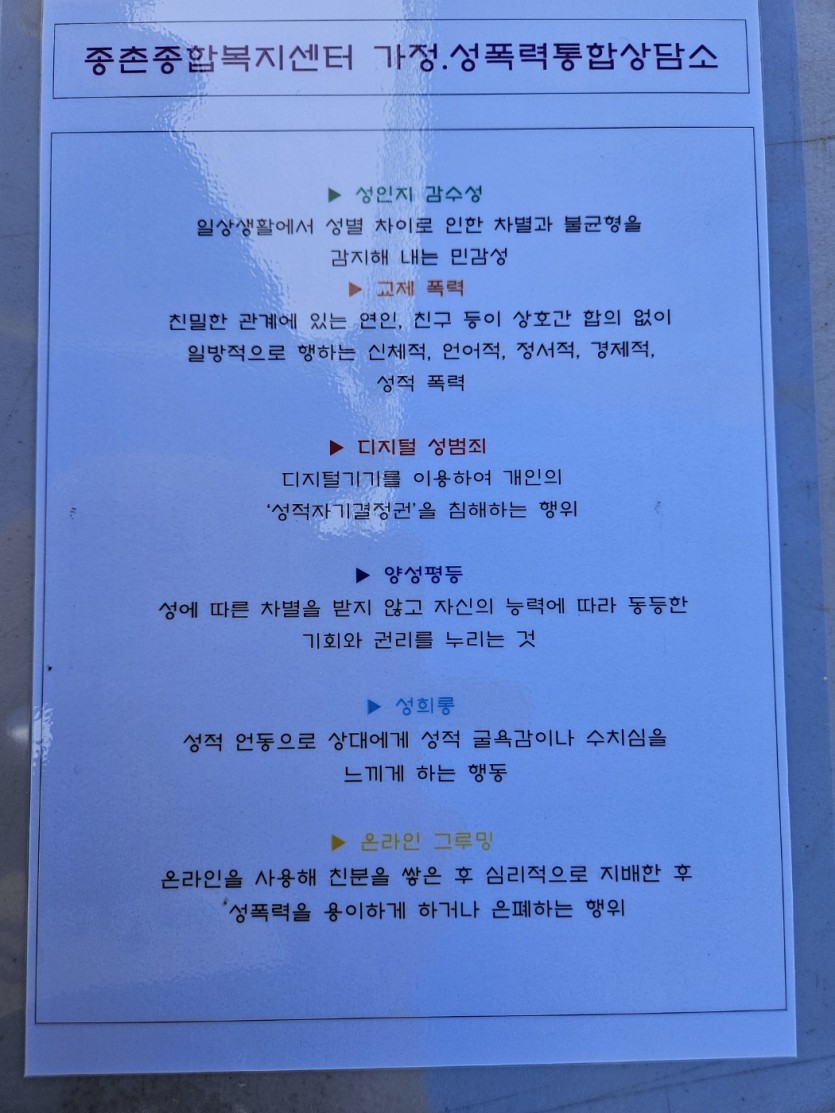 종촌종합복지센터 가정.성폭력통합상담소
▶ 성인지 감수성
일상생활에서 성별 차이로 인한 차별과 불균형을
감지해 내는 민감성
▶ 교제 폭력
친밀한 관계에 있는 연인, 친구 등이 상호간 합의 없이
일방적으로 행하는 신체적, 언어적, 정서적, 경제적,
성적 폭력
▶ 디지털 성범죄
디지털기기를 이용하여 개인의
‘성적자기결정권’을 침해하는 행위
▶ 양성평등
성에 따른 차별을 받지 않고 자신의 능력에 따라 동등한
기회와 권리를 누리는 것
▶ 성희롱
성적 언동으로 상대에게 성적 굴욕감이나 수치심을
느끼게 하는 행동
▶ 온라인 그루밍
온라인을 사용해 친분을 쌓은 후 심리적으로 지배한 후
성폭력을 용이하게 하거나 은폐하는 행위